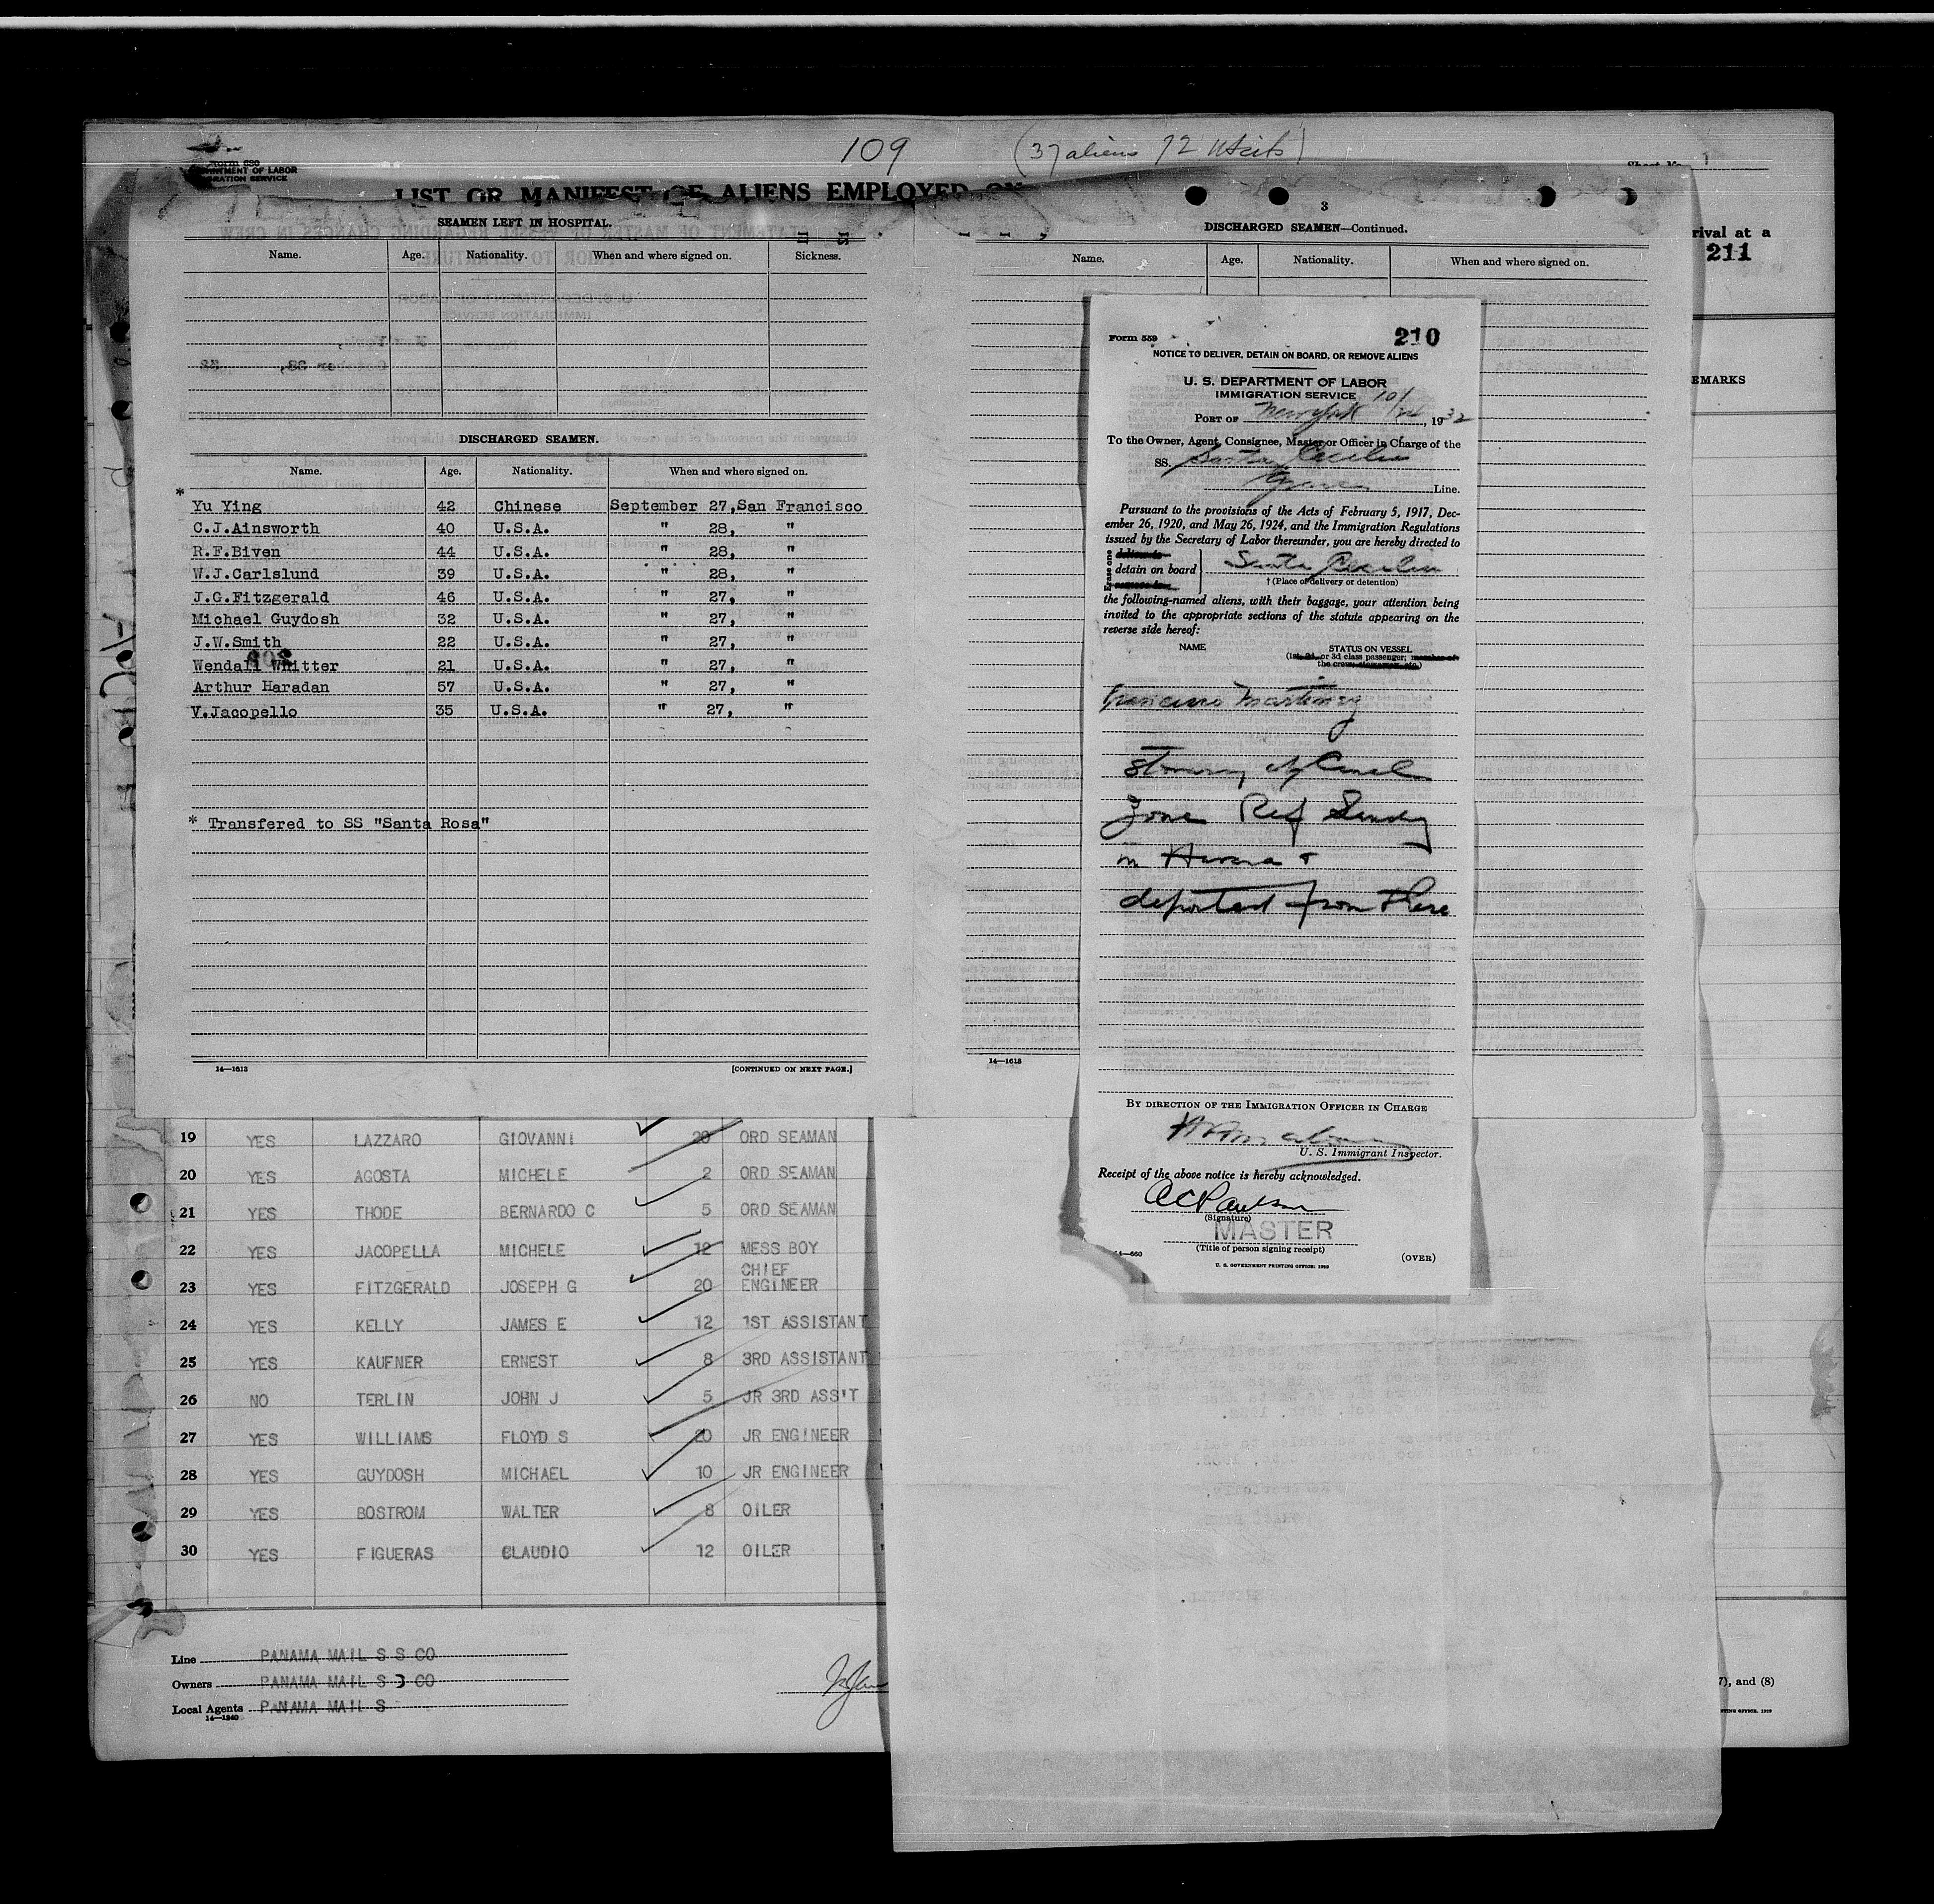 109 (37 aliens 72 USCits)
Form 680
DEPARTMENT OF LABOR
IMMIGRATION SERVICE
LIST OR MANIFEST OF ALIENS EMPLOYED ON
Sheet No. 1
rival at a
211
EMARKS
SEAMEN LEFT IN HOSPITAL.
Name. Age. Nationality. When and where signed on. Sickness.
DISCHARGED SEAMEN.
Name. Age. Nationality. When and where signed on.
* Yu Ying 42 Chinese September 27,San Francisco
C.J.Ainsworth 40 U.S.A. " 28, "
R.F.Biven 44 U.S.A. " 28, "
W.J.Carlslund 39 U.S.A. " 28, "
J.G.Fitzgerald 46 U.S.A. " 27, "
Michael Guydosh 32 U.S.A. " 27, "
J.W.Smith 22 U.S.A. " 27, "
Wendall Whitter 21 U.S.A. " 27, "
Arthur Haradan 57 U.S.A. " 27, "
V.Jacopello 35 U.S.A. " 27, "
* Transfered to SS "Santa Rosa"
14—1613 [CONTINUED ON NEXT PAGE.]
3
DISCHARGED SEAMEN—Continued.
Name. Age. Nationality. When and where signed on.
14—1613
Form 559 210
NOTICE TO DELIVER, DETAIN ON BOARD, OR REMOVE ALIENS
U. S. DEPARTMENT OF LABOR
IMMIGRATION SERVICE
PORT OF New York 10/24, 1932
To the Owner, Agent, Consignee, Master or Officer in Charge of the
SS. Santa Cecilia
Grace Line.
Pursuant to the provisions of the Acts of February 5, 1917, Dec-
ember 26, 1920, and May 26, 1924, and the Immigration Regulations
issued by the Secretary of Labor thereunder, you are hereby directed to
Erase one
deliver to
detain on board Santa Cecilia
remove to
† (Place of delivery or detention)
the following-named aliens, with their baggage, your attention being
invited to the appropriate sections of the statute appearing on the
reverse side hereof:
NAME STATUS ON VESSEL
(1st, 2d, or 3d class passenger; member of
the crew, stowaway, etc.)
Francisco Martinez
Zone Ref
in
deported from there
BY DIRECTION OF THE IMMIGRATION OFFICER IN CHARGE
U. S. Immigrant Inspector.
Receipt of the above notice is hereby acknowledged.
A C Paulson
(Signature)
MASTER
(Title of person signing receipt)
14—660 (OVER)
U. S. GOVERNMENT PRINTING OFFICE: 1929
19 YES LAZZARO GIOVANNI 20 ORD SEAMAN
20 YES AGOSTA MICHELE 2 ORD SEAMAN
21 YES THODE BERNARDO C 5 ORD SEAMAN
22 YES JACOPELLA MICHELE 12 MESS BOY
23 YES FITZGERALD JOSEPH G 20 CHIEF ENGINEER
24 YES KELLY JAMES E 12 1ST ASSISTANT
25 YES KAUFNER ERNEST 8 3RD ASSISTANT
26 NO TERLIN JOHN J 5 JR 3RD ASS'T
27 YES WILLIAMS FLOYD S 20 JR ENGINEER
28 YES GUYDOSH MICHAEL 10 JR ENGINEER
29 YES BOSTROM WALTER 8 OILER
30 YES FIGUERAS CLAUDIO 12 OILER
Line PANAMA MAIL S S CO
Owners PANAMA MAIL S S CO
Local Agents PANAMA MAIL S
14—1240
7), and (8)